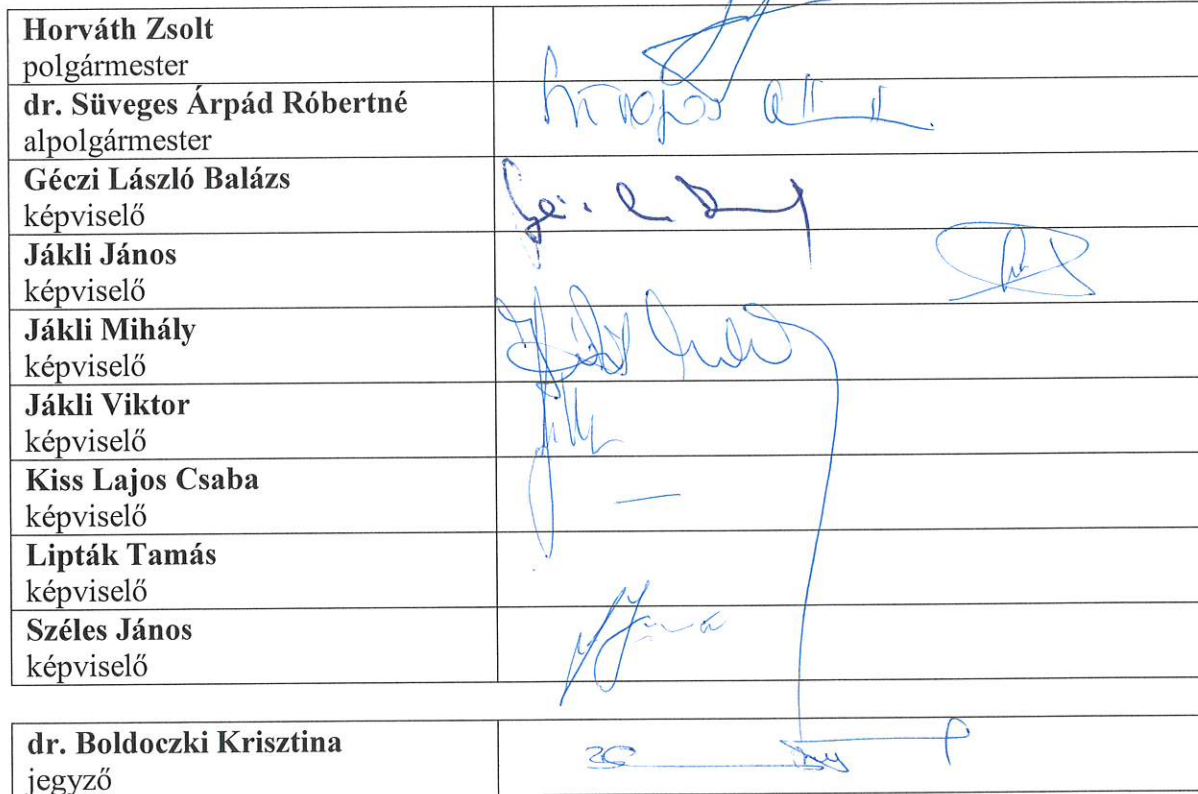 Horváth Zsolt
polgármester
dr. Süveges Árpád Róbertné
alpolgármester
Géczi László Balázs
képviselő
Jákli János
képviselő
Jákli Mihály
képviselő
Jákli Viktor
képviselő
Kiss Lajos Csaba
képviselő
—
Lipták Tamás
képviselő
Széles János
képviselő
dr. Boldoczki Krisztina
jegyző